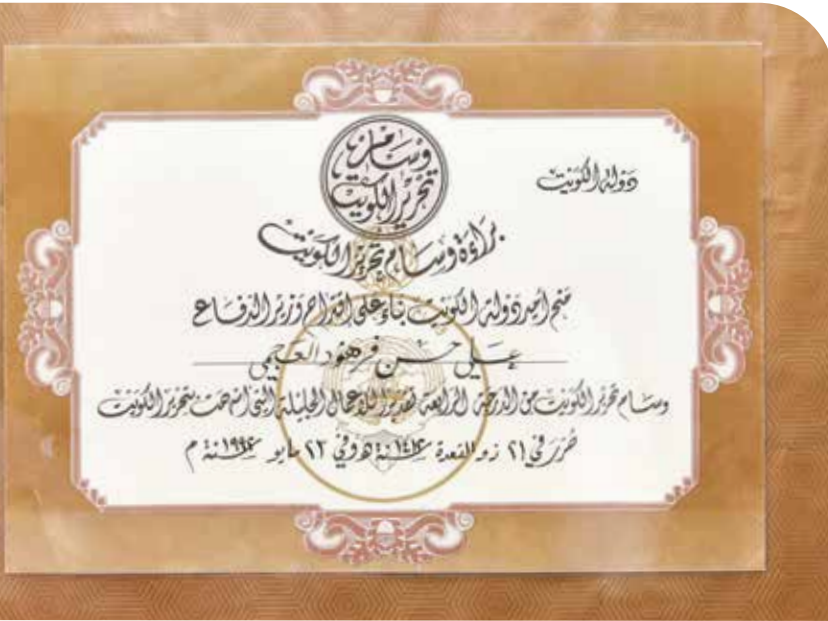 دولة الكويت
وسام
تحرير الكويت
براءة وسام تحرير الكويت
منح أمير دولة الكويت بناء على اقتراح وزير الدفاع
علي حسن فرهود العجمي
وسام تحرير الكويت من الدرجة الرابعة تقديرا للأعمال الجليلة التي أسهمت بتحرير الكويت
حُرر في ٢١ ذو القعدة سنة ١٤١٤ هـ وفي ٢٢ مايو سنة ١٩٩٤ م